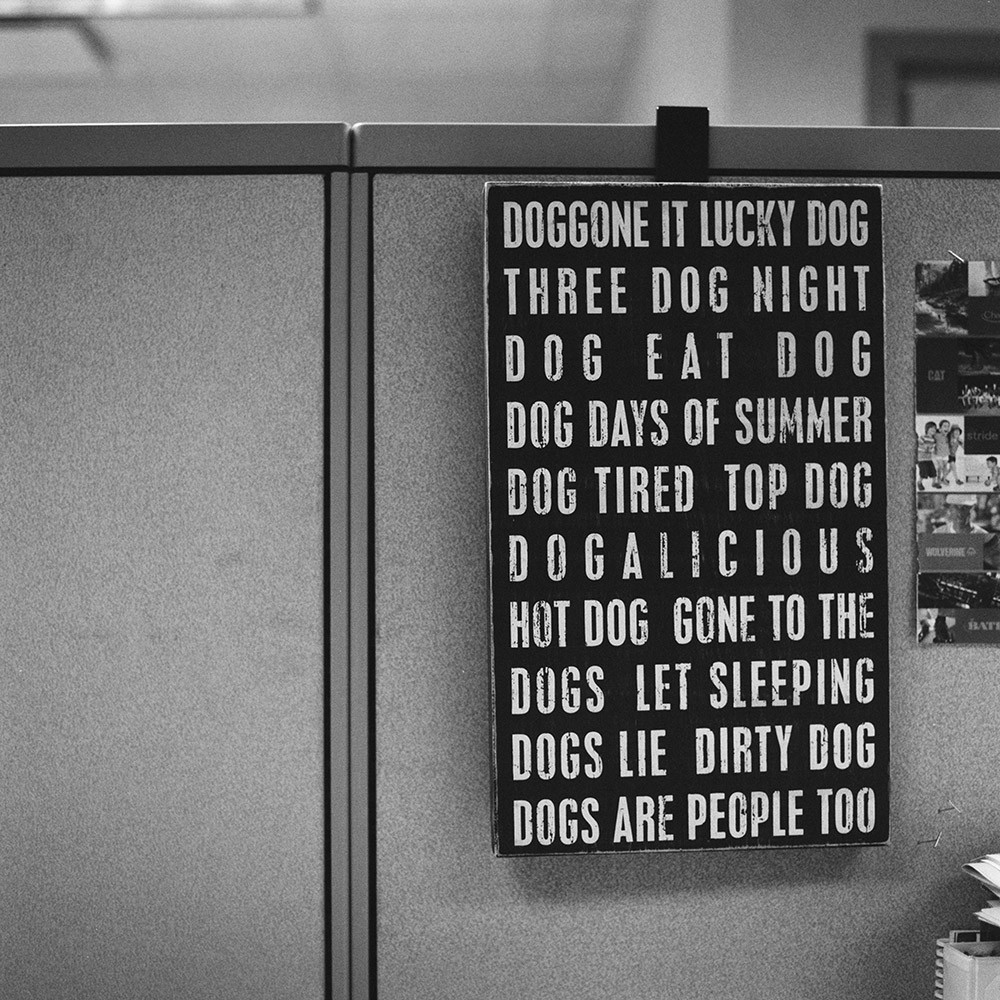 DOGGONE IT LUCKY DOG
THREE DOG NIGHT
DOG EAT DOG
DOG DAYS OF SUMMER
DOG TIRED TOP DOG
DOGALICIOUS
HOT DOG GONE TO THE
DOGS LET SLEEPING
DOGS LIE DIRTY DOG
DOGS ARE PEOPLE TOO
CAT
stride
WOLVERINE